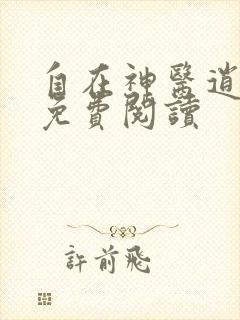 自在神醫逍
免費閱讀
許前飛